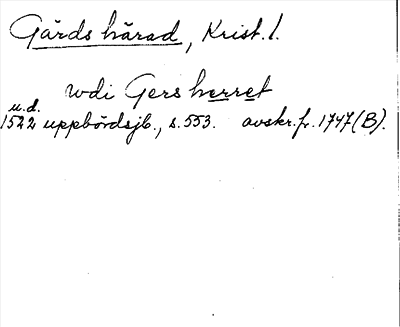 Gärds härad, Krist. l.
wdi Gers herret
u.d.
1522 uppbördsjb., s. 553. avskr. fr. 1747 (B).